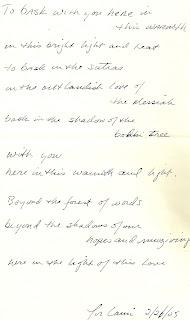 To bask with you here in
this warmth
in this bright light and heat
to bask in the sutras
in the outlandish love of
the Messiah
bask in the shadow of the
bodhi tree
with you
here in this warmth and light.
Beyond the forest of words
beyond the shadows of our
hopes and misgiving
here in the light of this Love
for